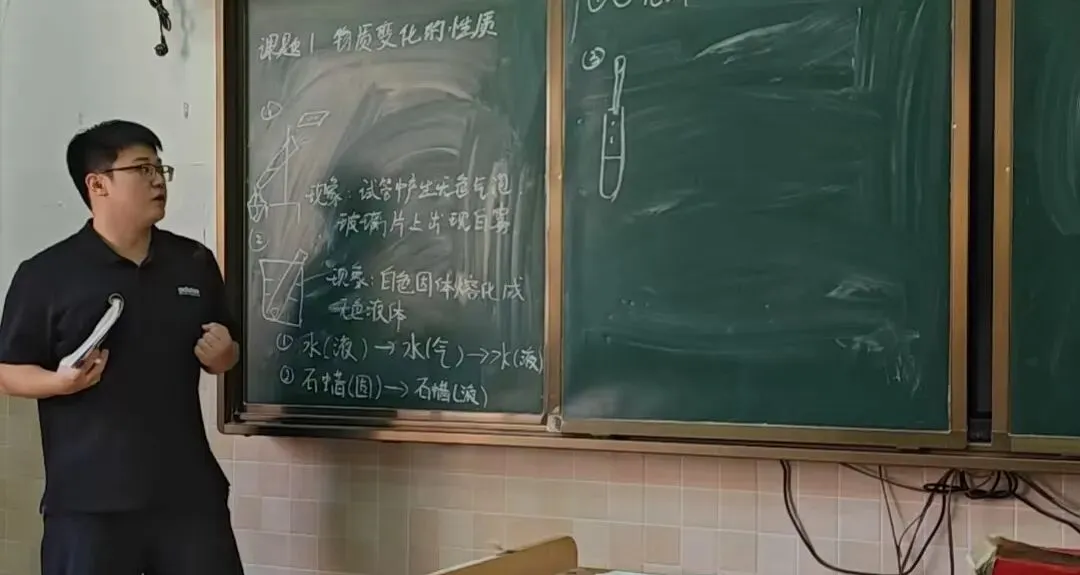 课题1 物质变化的性质
①
现象:试管中产生无色气泡
玻璃片上出现白雾
②
现象:白色固体熔化成
无色液体
① 水(液)→水(气)→水(液)
② 石蜡(固)→石蜡(液)
③